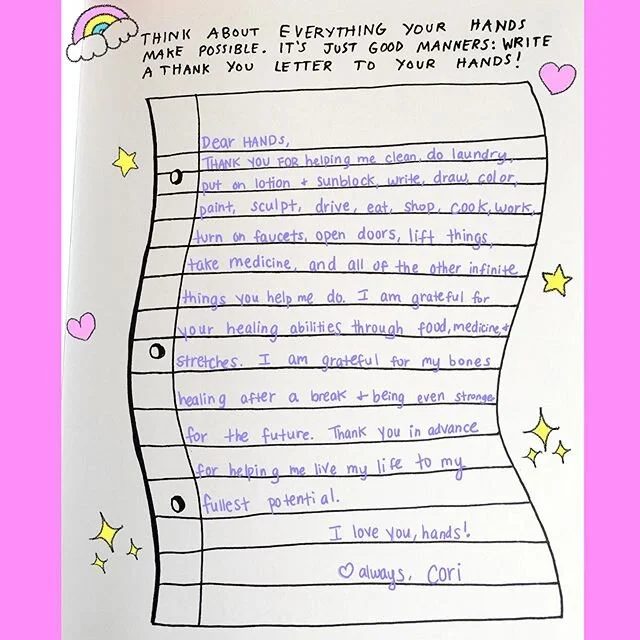 THINK ABOUT EVERYTHING YOUR HANDS
MAKE POSSIBLE. IT'S JUST GOOD MANNERS: WRITE
A THANK YOU LETTER TO YOUR HANDS!
Dear HANDS,
THANK YOU FOR helping me clean, do laundry,
put on lotion + sunblock, write, draw, color,
paint, sculpt, drive, eat, shop, cook, work,
turn on faucets, open doors, lift things,
take medicine, and all of the other infinite
things you help me do. I am grateful for
your healing abilities through food, medicine, +
stretches. I am grateful for my bones
healing after a break + being even stronger
for the future. Thank you in advance
for helping me live my life to my
fullest potential.
I love you, hands!
♡ always, Cori